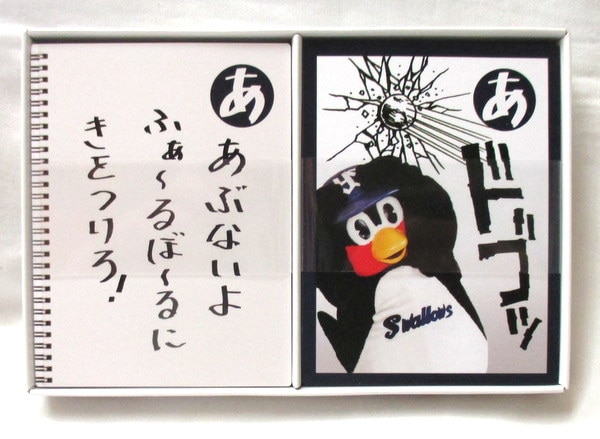 あ
あぶないよ
ふぁ〜るぼ〜るに
きをつけろ!
あ
ドゴッ
Swallows